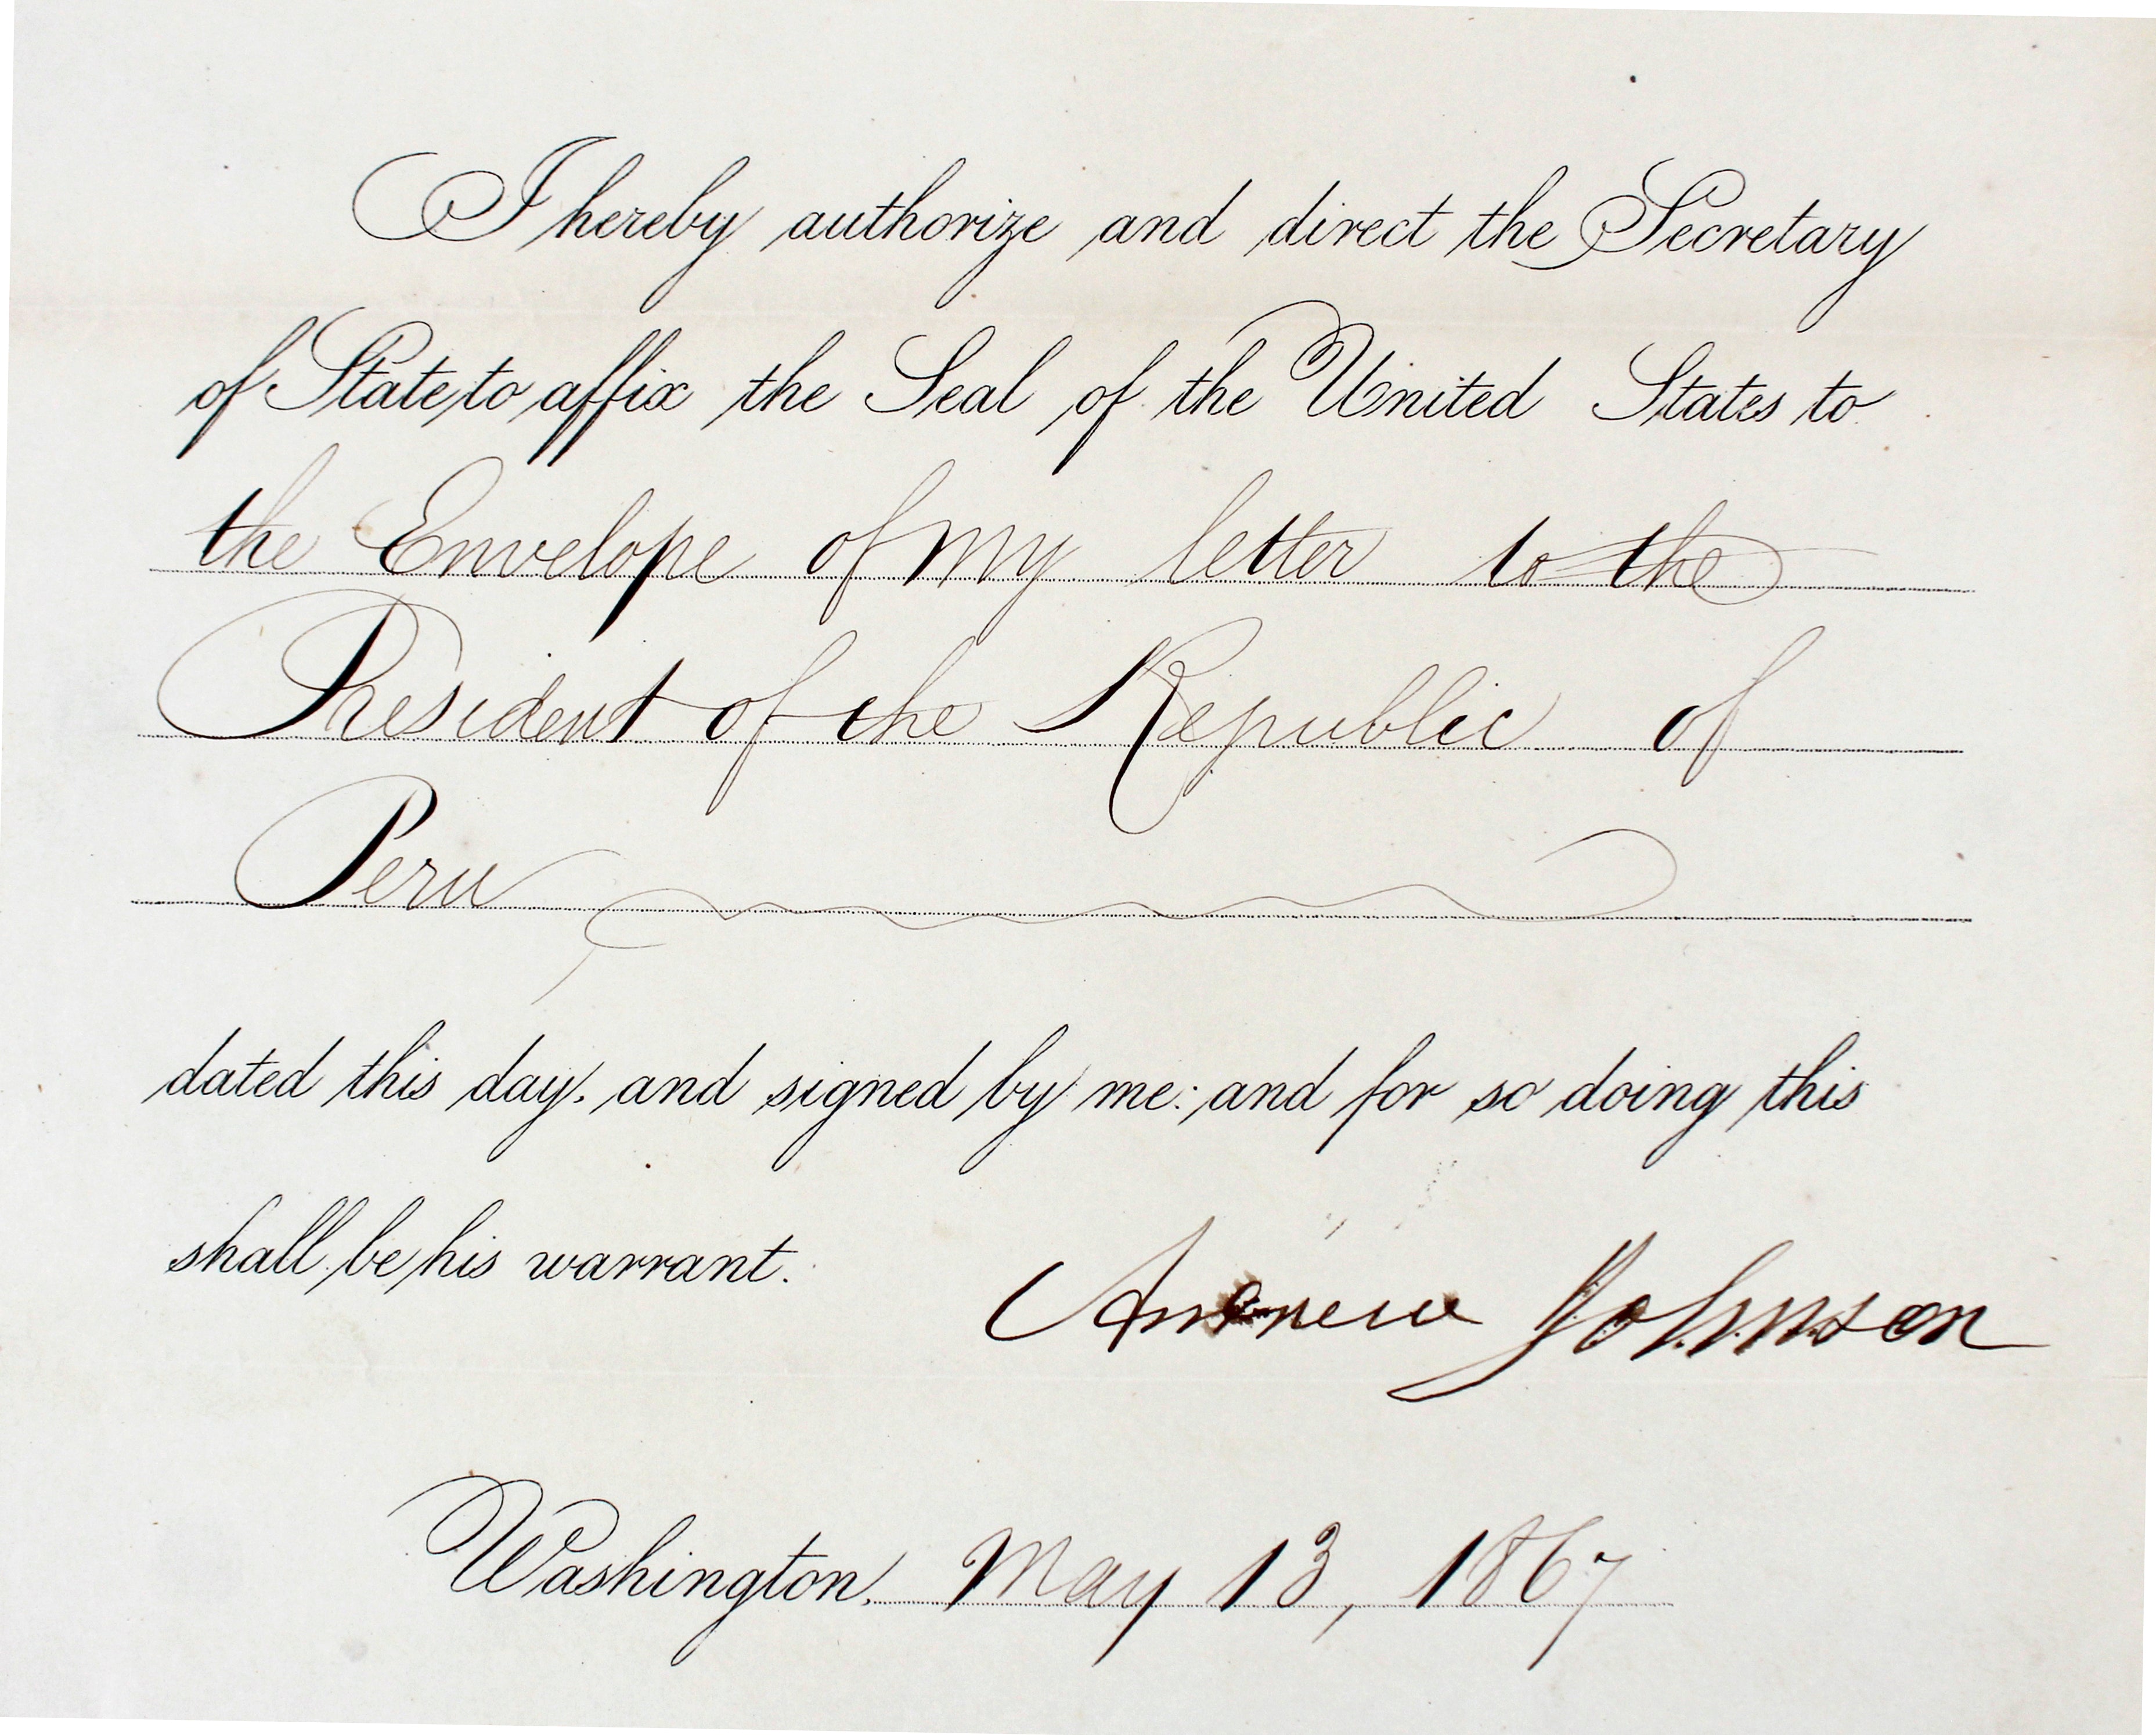 I hereby authorize and direct the Secretary
of State to affix the Seal of the United States to
the Envelope of my letter to the
President of the Republic of
Peru
dated this day, and signed by me: and for so doing this
shall be his warrant.
Andrew Johnson
Washington, May 13, 1867